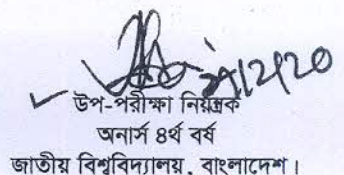 উপ-পরীক্ষা নিয়ন্ত্রক
অনার্স ৪র্থ বর্ষ
জাতীয় বিশ্ববিদ্যালয়, বাংলাদেশ।